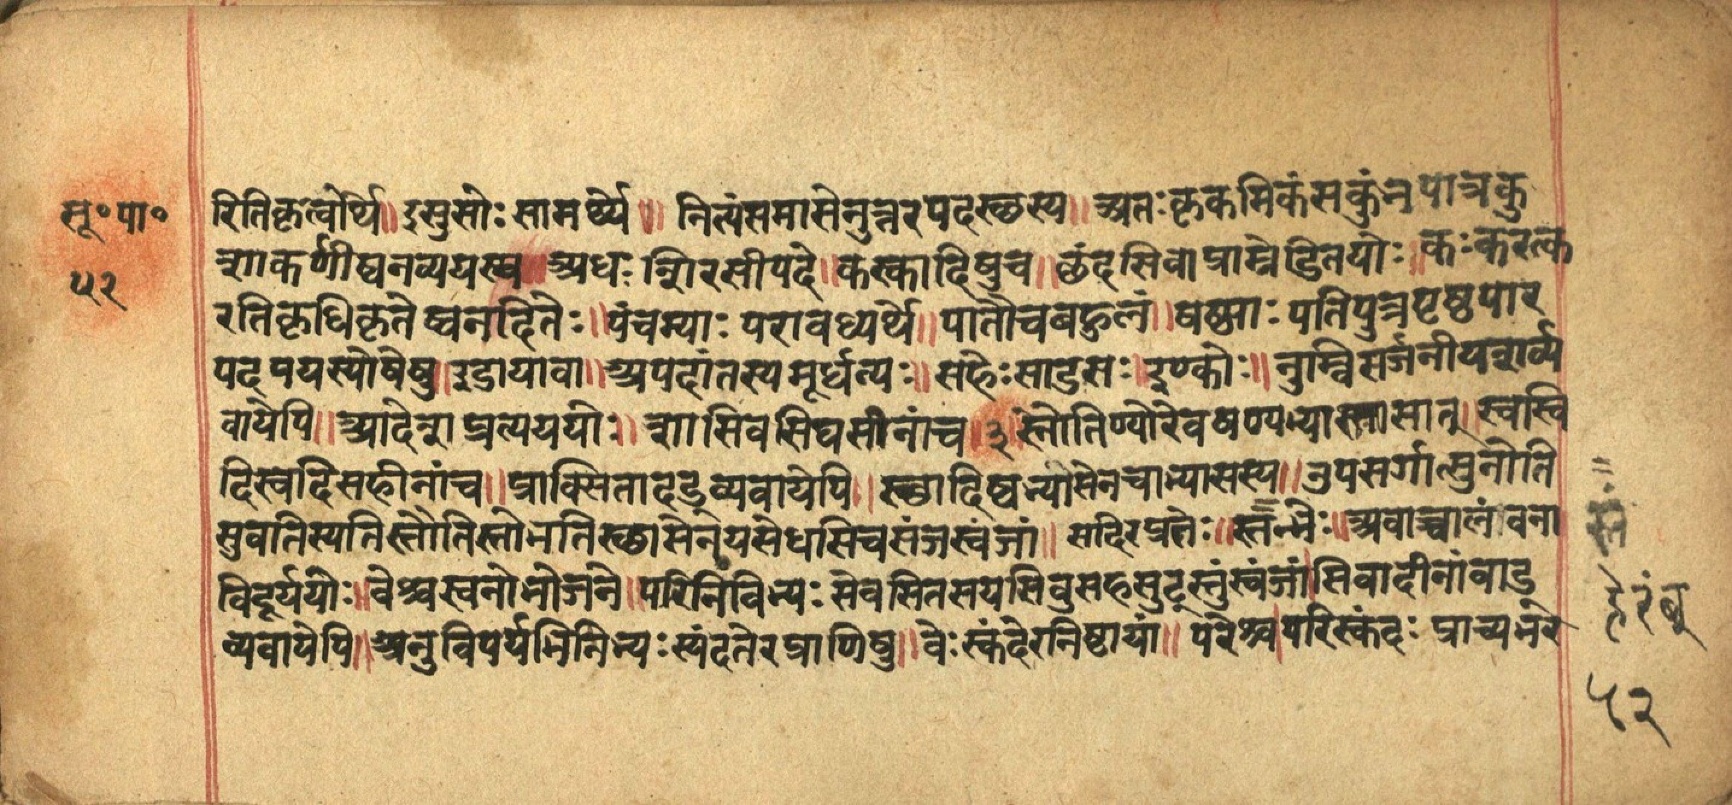 सू॰पा॰
५२
रितिकृत्वोर्थे॥इसुसोः सामर्थ्ये॥ नित्यंसमासेनुत्तरपदस्छस्य॥अतःकृकमिकंसकुंभपात्रकु
शाकर्णीष्वनव्ययस्य अधःशिरसीपदे॥कस्कादिषुच॥छंदसिवाप्राम्रेडितयोः॥कःकरत्क
रतिकृधिकृतेष्वनदितेः॥पंचम्याः परावध्यर्थे॥पातौचबहुलं॥षष्ठ्याः पतिपुत्रपृष्ठपार
पदपयस्पोषेषु॥इडायावा॥अपदांतस्यमूर्धन्यः॥सहेःसाडसः॥इण्कोः॥नुम्विसर्जनीयशर्व्य
वायेपि॥आदेशप्रत्यययोः॥शासिवसिघसीनांच॥३स्तौतिण्योरेवषण्यभ्यासात्॥स्वस्वि
दिस्वदिसहीनांच॥प्राक्सितादड्व्यवायेपि॥स्छादिष्वभ्यासेनचाभ्यासस्य॥उपसर्गात्सुनोति
सुवतिस्यतिस्तौतिस्तोभतिस्छासेनयसेधसिचसंजस्वंजां॥ सदिरप्रतेः॥स्तन्भेः॥अवाच्चालंबना
विदूर्ययोः॥वेश्चस्वनोभोजने॥परिनिविभ्यः सेवसितसयसिवुसहसुट्स्तुंस्वंजां॥सिवादीनांवाड्
व्यवायेपि॥अनुविपर्यभिनिभ्यःस्यंदतेरप्राणिषु॥वेःस्कंदेरनिष्ठायां॥ परेश्च परिस्कंदः प्राच्यभरे
हेरंबू
५२